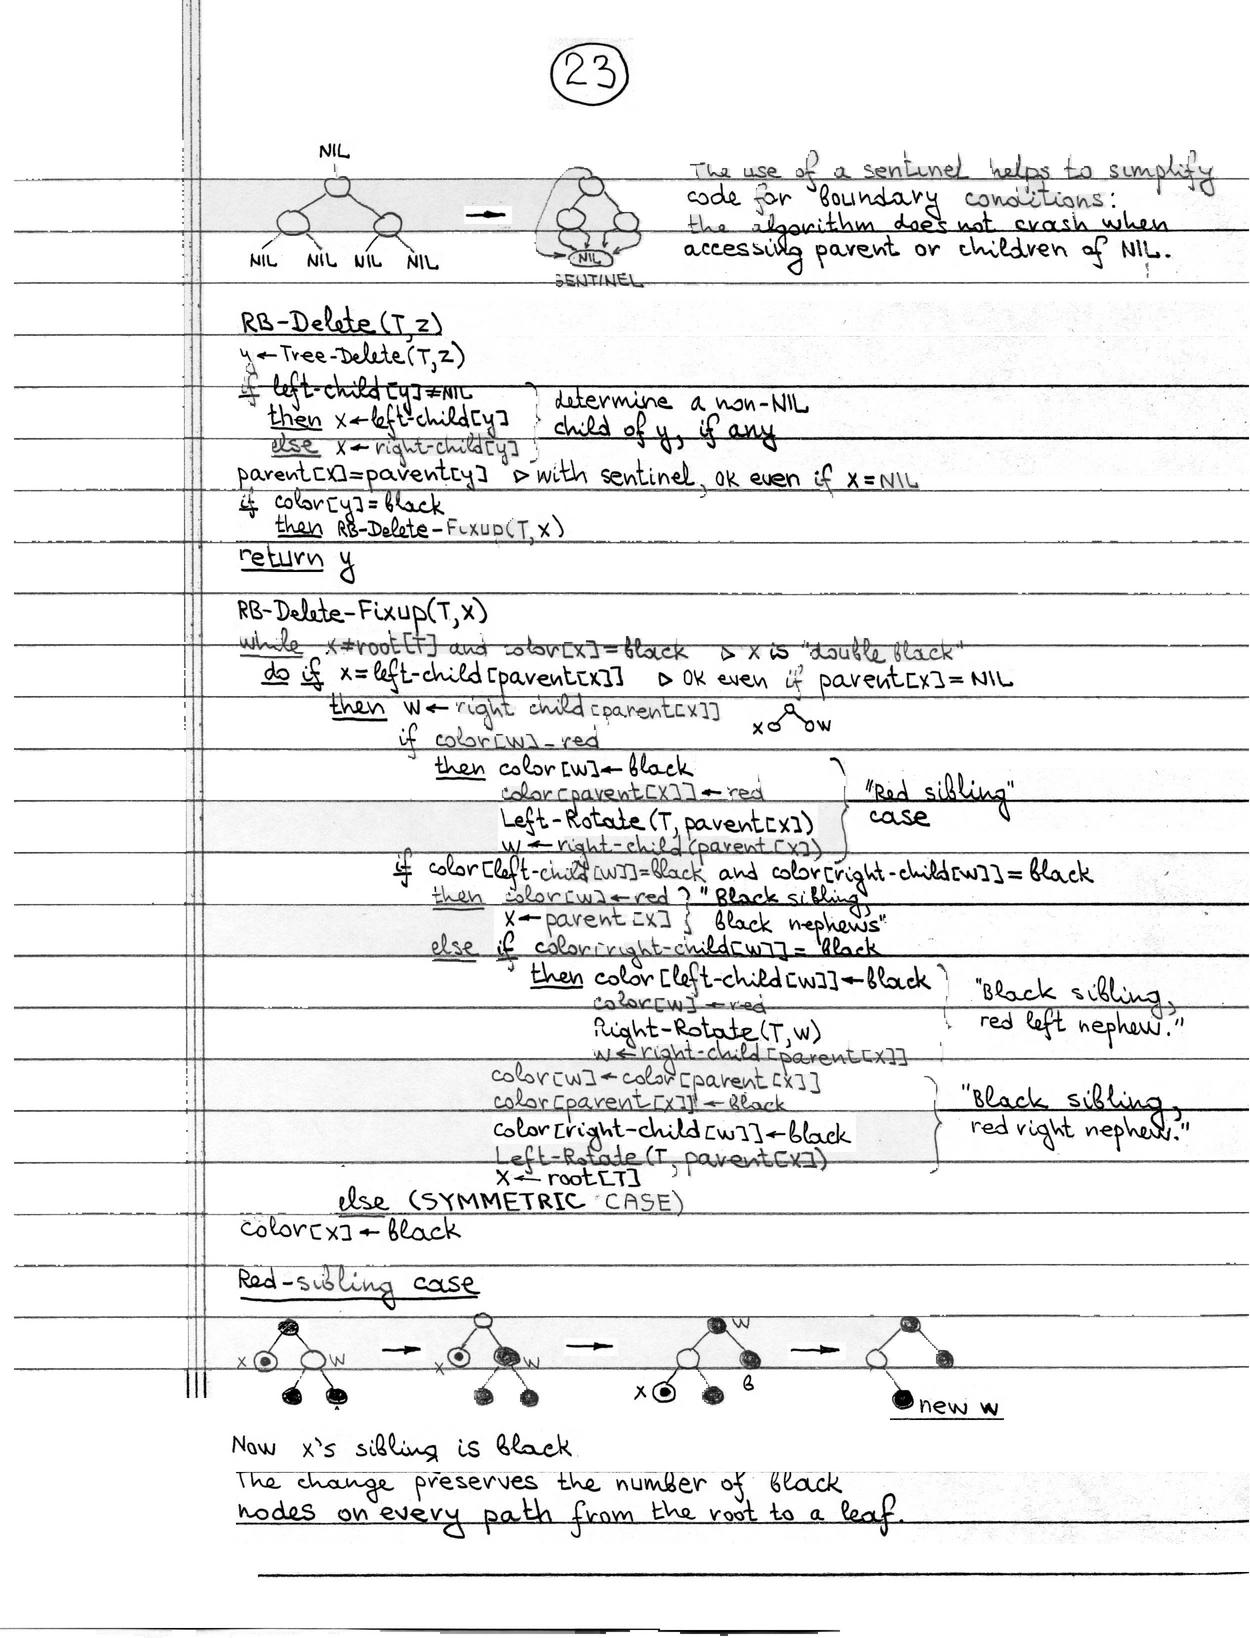 23
NIL
NIL NIL NIL NIL
NIL
SENTINEL
The use of a sentinel helps to simplify
code for boundary conditions:
the algorithm does not crash when
accessing parent or children of NIL.
RB-Delete(T,z)
y←Tree-Delete(T,z)
if left-child[y]≠NIL
then x←left-child[y]
else x←right-child[y]
determine a non-NIL
child of y, if any
parent[x]=parent[y] ▷ with sentinel, OK even if x=NIL
if color[y]=black
then RB-Delete-Fixup(T,x)
return y
RB-Delete-Fixup(T,x)
while x≠root[T] and color[x]=black ▷ x is "double black"
do if x=left-child[parent[x]] ▷ OK even if parent[x]=NIL
then w←right child[parent[x]]
x w
if color[w]=red
then color[w]←black
color[parent[x]]←red
Left-Rotate(T,parent[x])
w←right-child(parent[x])
"Red sibling"
case
if color[left-child[w]]=black and color[right-child[w]]=black
then color[w]←red
x←parent[x]
"Black sibling,
black nephews"
else if color[right-child[w]]=black
then color[left-child[w]]←black
color[w]←red
Right-Rotate(T,w)
w←right-child[parent[x]]
"Black sibling,
red left nephew."
color[w]←color[parent[x]]
color[parent[x]]←black
color[right-child[w]]←black
Left-Rotate(T,parent[x])
x←root[T]
"Black sibling,
red right nephew."
else (SYMMETRIC CASE)
color[x]←black
Red-sibling case
x w
x w
w
x B
new w
Now x's sibling is black
The change preserves the number of black
nodes on every path from the root to a leaf.